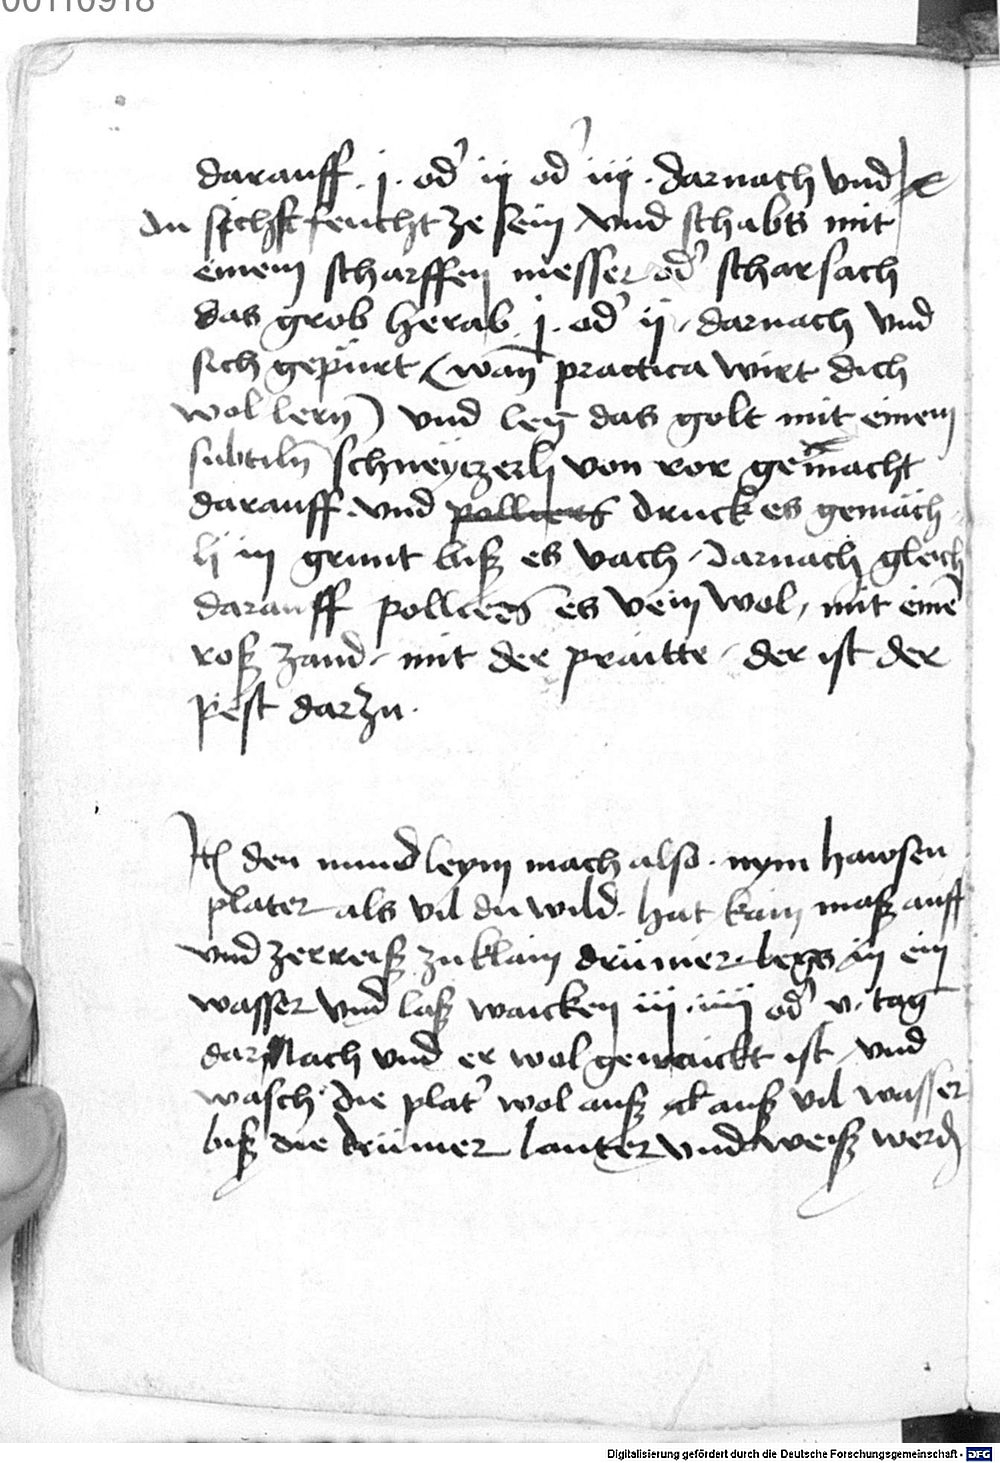 00110918
darauff . j . od' ij od' iij . darnach vnd
du sichst feucht ze sein vnd schabts mit
einem scharffen messer od' scharsach
das grob herab . j . od' ij . darnach vnd
sich gepürt ( wan̄ practica wirt dich
wol lern̄ ) vnd leg das golt mit einem
subtiln̄ schneytzerlj von ror gemacht
darauff . vnd druck es gemäch
lj in grunt biß es vach . darnach gleich
darauff es vein wol , mit eine̅
roß zand . mit der praitte . der ist der
pest darzu .
Jt̄ den mundleym mach also . nym hawsen
plater als vil du wild . hat kain maß auff
vnd zerreiß zu klain drümer . legs in ein
wasser vnd laß waicken iii . iiii od' v . tag
darnach vnd er wol gewaickt ist , vnd
wasch die plat' wol auß auß vil wasser
biß die drümer lauter vnd weiß werdn̄
Digitalisierung gefördert durch die Deutsche Forschungsgemeinschaft - DFG